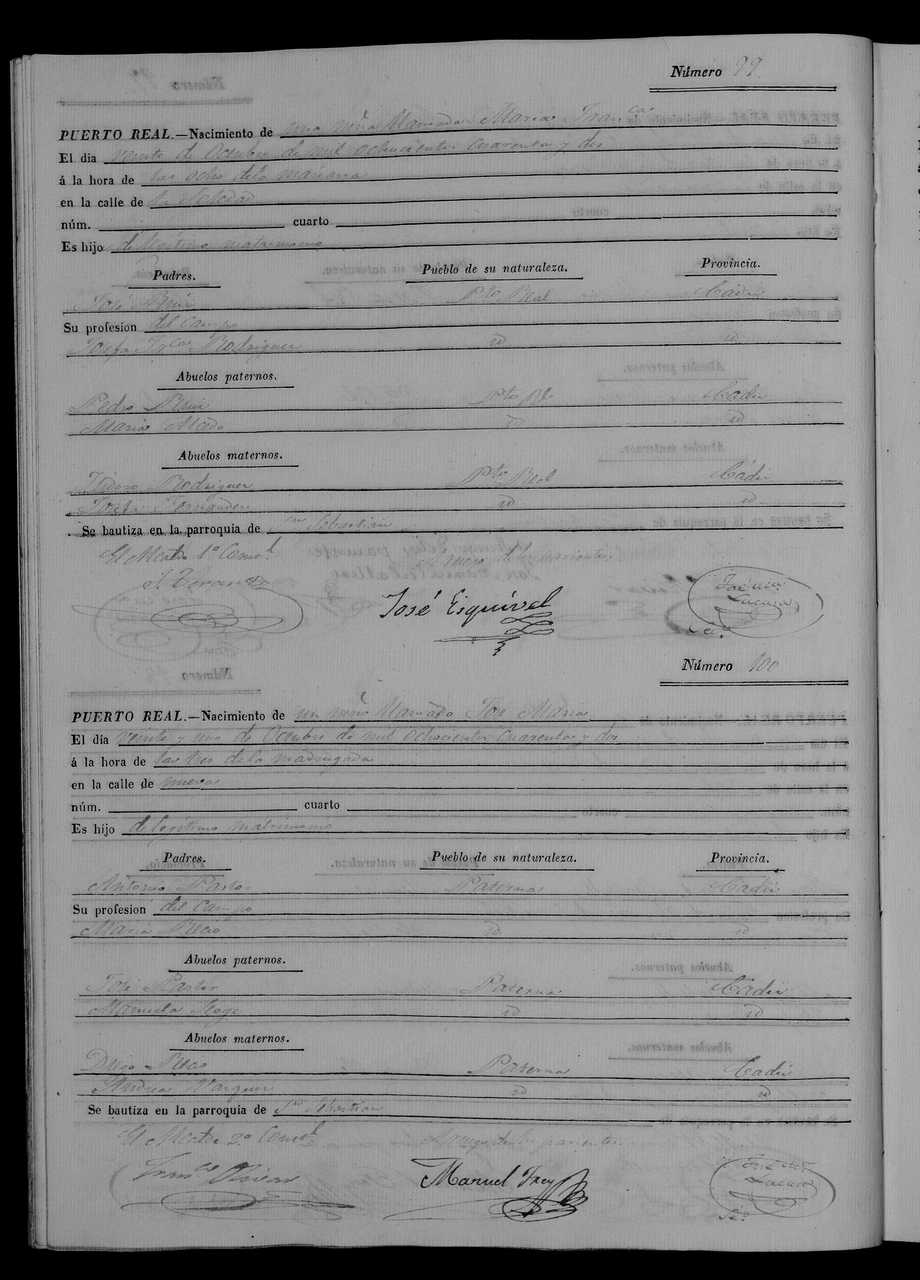 Número 99.
PUERTO REAL.—Nacimiento de una niña llamada María Fran.ca
El dia veinte de Octubre de mil ochocientos cuarenta y dos
á la hora de las ocho de la mañana
en la calle de la Soledad
núm. cuarto
Es hijo de lexitimo matrimonio
Padres. Pueblo de su naturaleza. Provincia.
José Pto Real Cadiz
Su profesion del campo
Josefa Rodriguez id id
Abuelos paternos.
Pedro Pto Rl Cadiz
Maria id id
Abuelos maternos.
Isidoro Rodriguez Pto Real Cadiz
Josefa Fernandez id id
Se bautiza en la parroquia de Sn Sebastian
El Alcalde 1º Const.l A ruego de los parientes
José Esquivel
Lacana
Número 100
PUERTO REAL.—Nacimiento de un niño llamado José Maria
El día veinte y uno de Octubre de mil ochocientos cuarenta y dos
á la hora de las tres de la madrugada
en la calle de nueva
núm. cuarto
Es híjo de lexitimo matrimonio
Padres. Pueblo de su naturaleza. Provincia.
Antonio Pastor Paterna Cadiz
Su profesion del campo
Maria id id
Abuelos paternos.
José Pastor Paterna Cadiz
Manuela id id
Abuelos maternos.
Diego Paterna Cadiz
Andrea Vazquez id id
Se bautiza en la parroquia de Sn Sebastian
El Alcalde 2º Const.l A ruego de los parientes
Fran.co Manuel Frey
Lacana